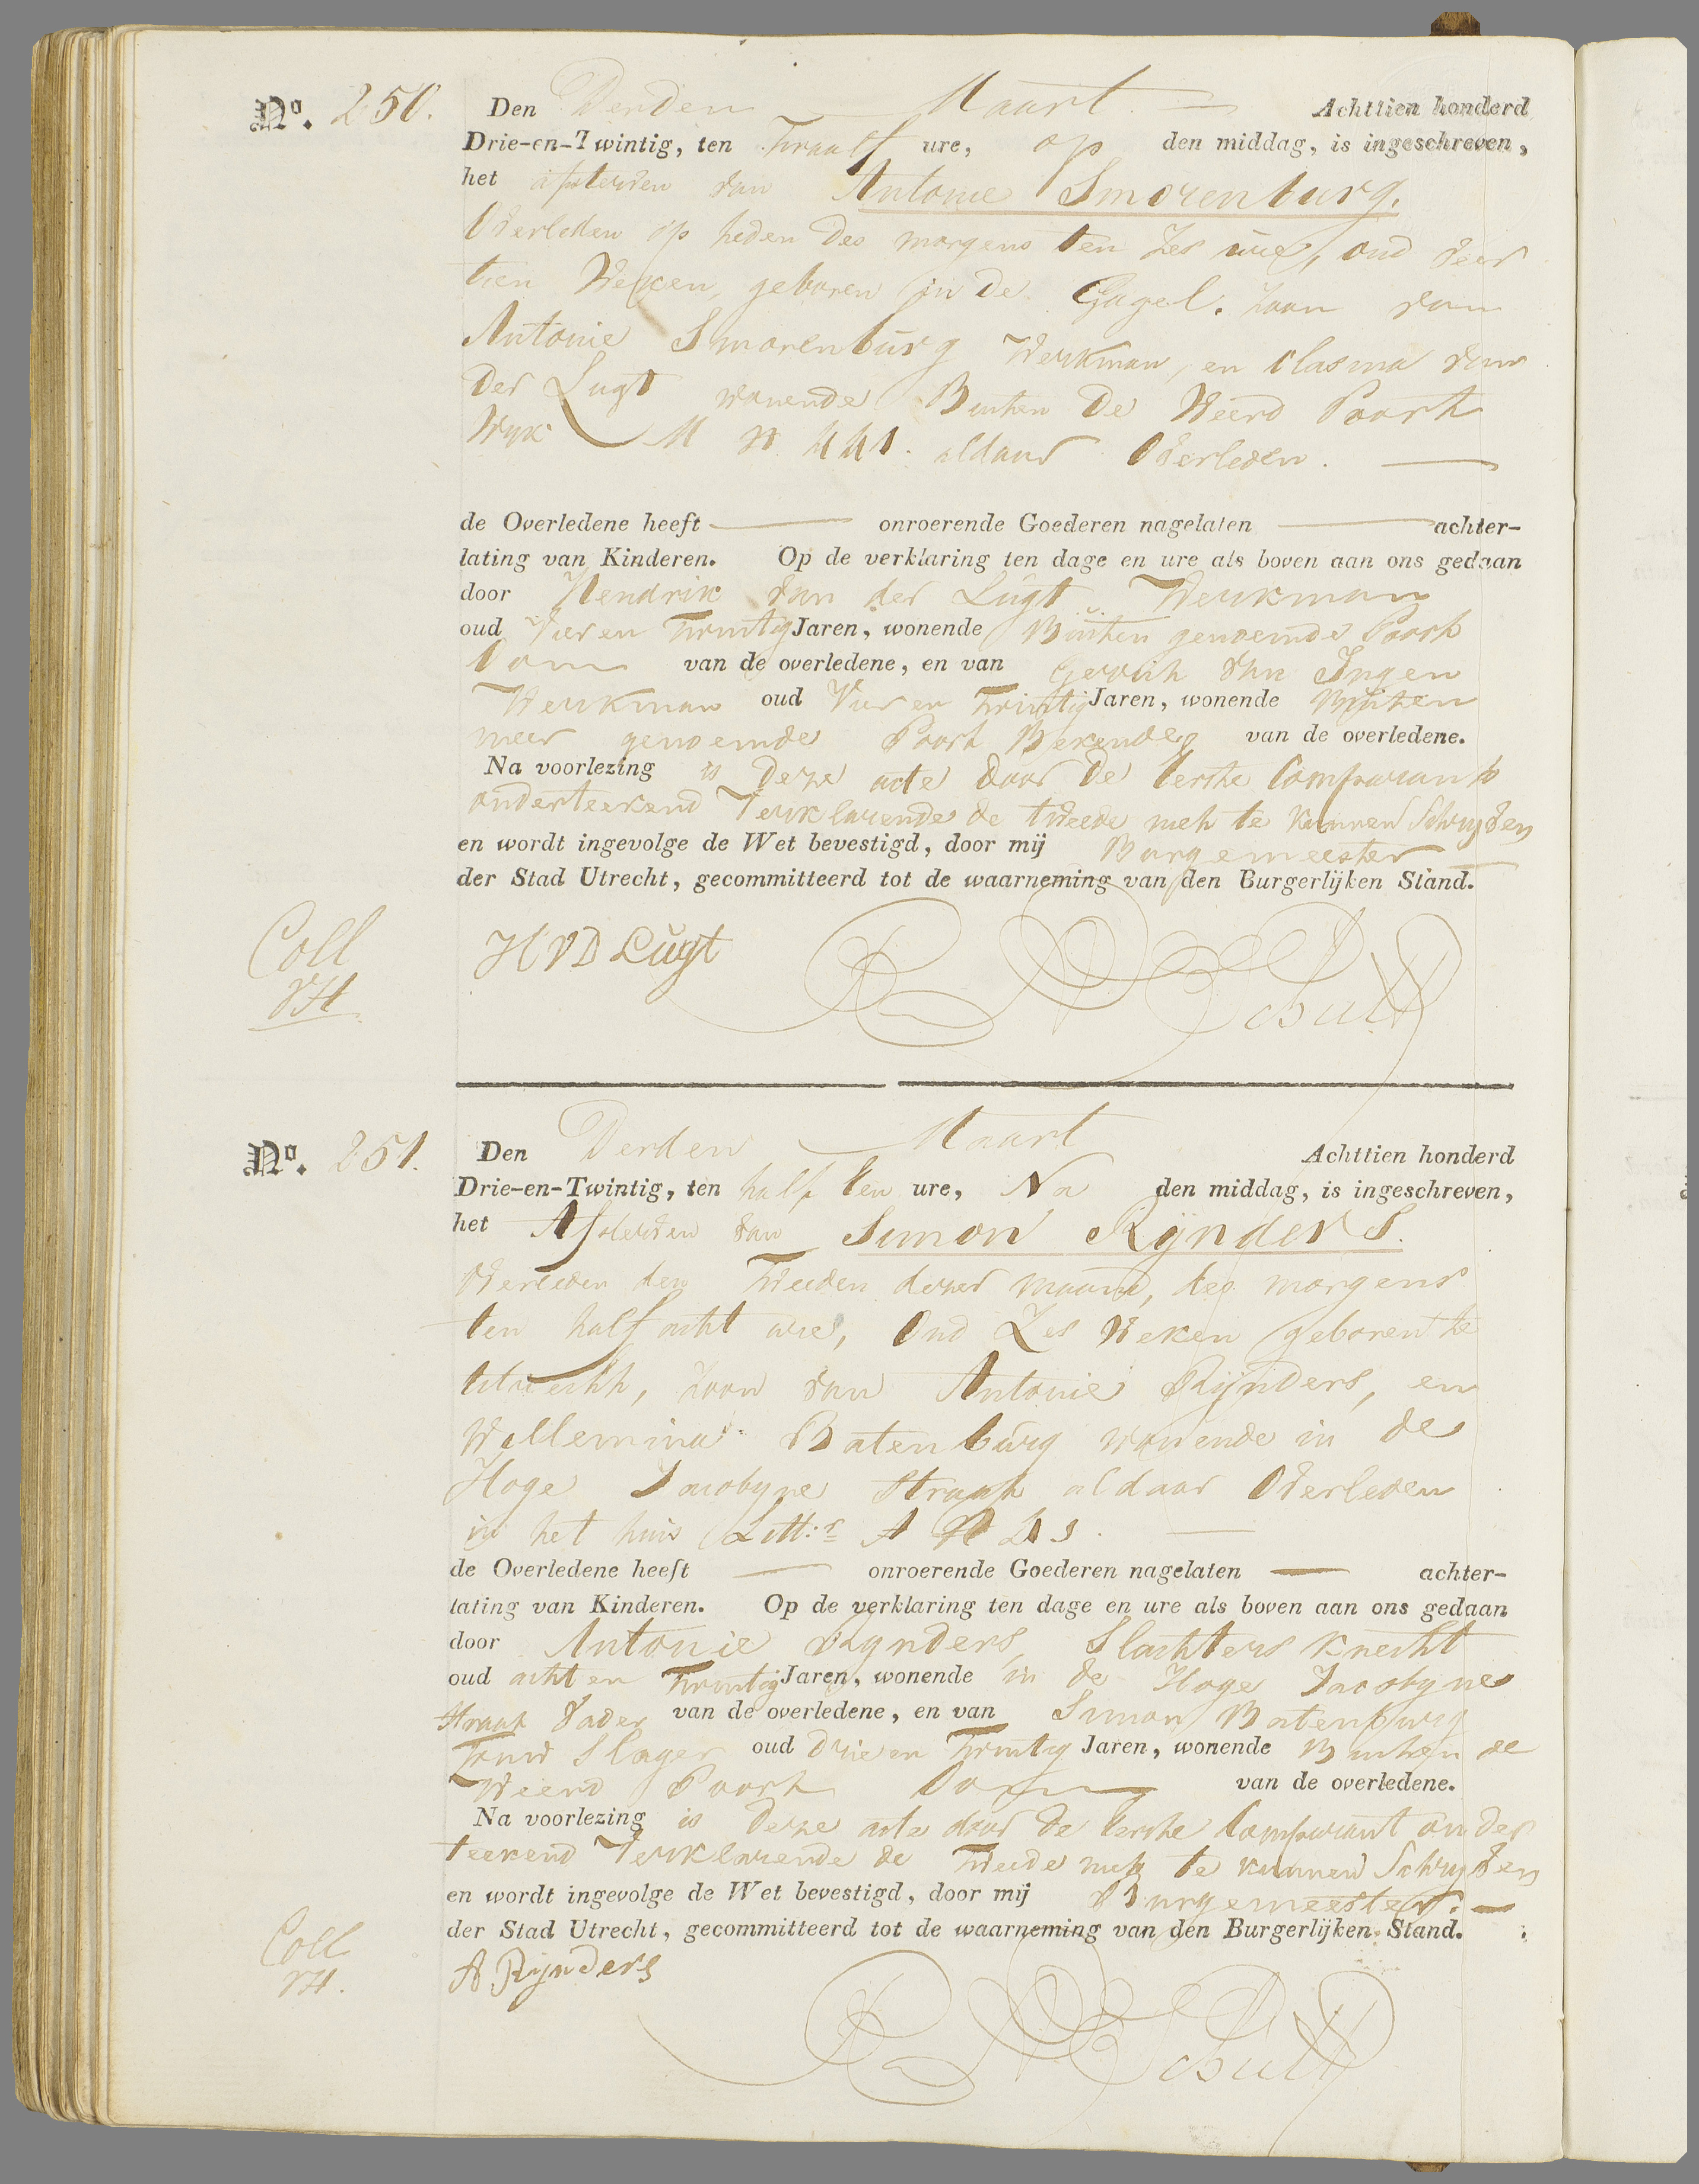 Nº. 250. Den Derden Maart Achttien honderd
Drie-en-Twintig, ten Twaalf ure, op den middag, is ingeschreven,
het afsterven van Antonie Smorenburg.
Overleden op heden des morgens ten zes ure, oud veer
tien Weken, geboren in de Gagel. zoon van
Antonie Smorenburg Werkman, en Clasina van
der Lugt wonende Buiten de Weerd Poort
Wyk M N 441. aldaar Overleden.
de Overledene heeft onroerende Goederen nagelaten achter-
lating van Kinderen. Op de verklaring ten dage en ure als boven aan ons gedaan
door Hendrik van der Lugt Werkman
oud Vier en Twintig Jaren, wonende Buiten genoemde Poort
Oom van de overledene, en van Gerrit van Ingen
Werkman oud Vier en Twintig Jaren, wonende Buiten
meer genoemde Poort Bekende van de overledene.
Na voorlezing is deze acte door de Eerste Comparant
onderteekend Verklarende de tweede niet te kunnen Schryven
en wordt ingevolge de Wet bevestigd, door mij Burgemeester
der Stad Utrecht, gecommitteerd tot de waarneming van den Burgerlijken Stand.
Coll
VH
H V D Lugt
Nº. 251. Den Derden Maart Achttien honderd
Drie-en-Twintig, ten half een ure, Na den middag, is ingeschreven,
het Afsterven van Simon Rynders.
Overleden den Tweeden dezer maand, des morgens
ten half acht ure, Oud Zes Weken geboren te
Utrecht, zoon van Antonie Rijnders, en
Willemina Batenburg wonende in de
Hoge Jacobyne Straat aldaar Overleden
in het huis Litt: A N
de Overledene heeft onroerende Goederen nagelaten achter-
lating van Kinderen. Op de verklaring ten dage en ure als boven aan ons gedaan
door Antonie Rynders, Slachters Knecht
oud acht en Twintig Jaren, wonende in de Hoge Jacobyne
Straat Vader van de overledene, en van Simon Batenburg
Slager oud Drie en Twintig Jaren, wonende Buiten de
Weerd Poort Oom van de overledene.
Na voorlezing is deze acte door de Eerste Comparant onder
teekend Verklarende de Tweede niet te kunnen Schryven
en wordt ingevolge de Wet bevestigd, door mij Burgemeester.
der Stad Utrecht, gecommitteerd tot de waarneming van den Burgerlijken Stand.
Coll
VH.
A Rijnders